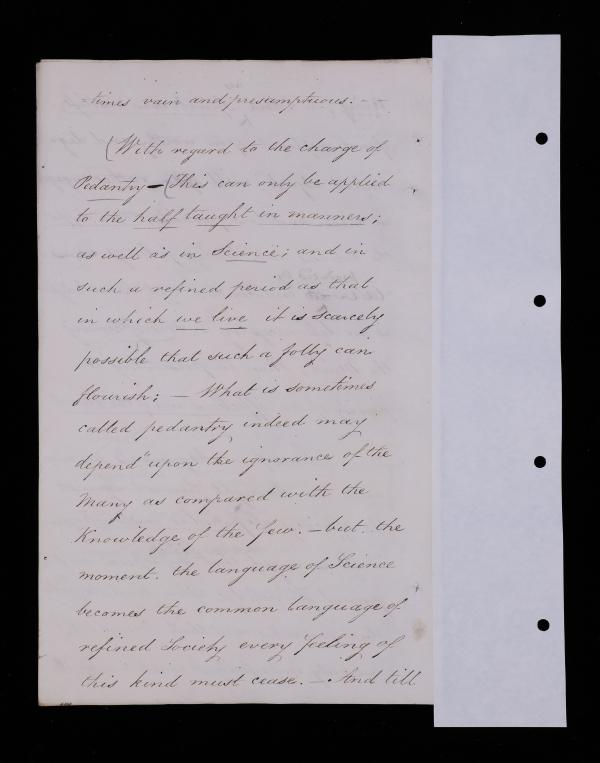 =times vain and presumptuous. -
(With regard to the charge of
Pedantry - (This can only be applied
to the half taught in manners;
as well as in Science; and in
such a refined period as that
in which we live it is scarcely
possible that such a folly can
flourish; - What is sometimes
called pedantry indeed may
depend upon the ignorance of the
Many as compared with the
Knowledge of the few. - but. the
moment. the language of Science
becomes the common language of
refined Society every feeling of
this kind must cease. - And till